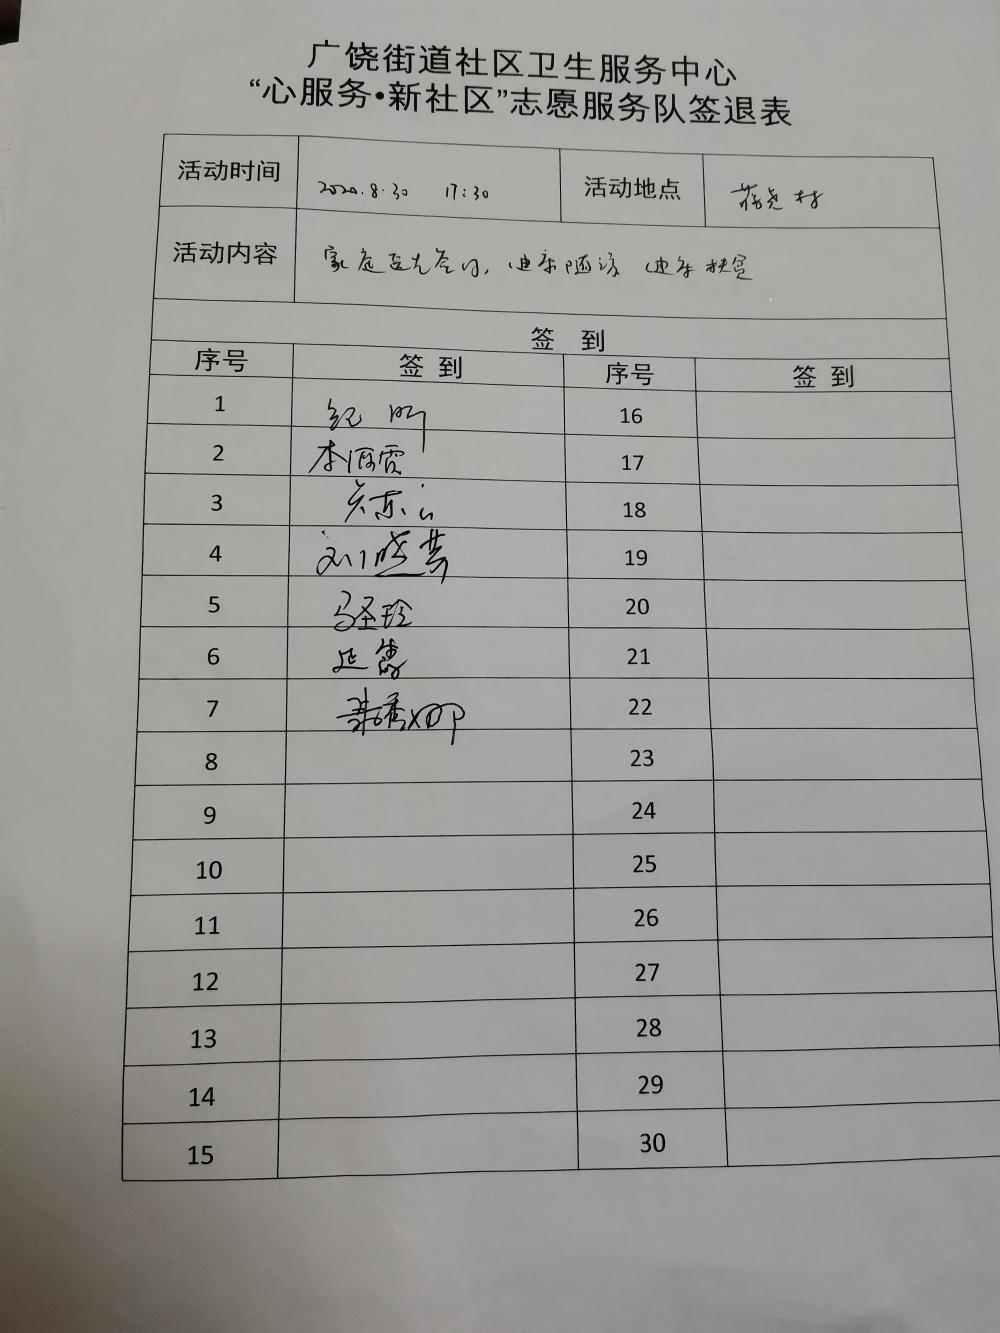 广饶街道社区卫生服务中心
“心服务•新社区”志愿服务队签退表
活动时间 2020.8.30 17:30 活动地点 蒋尧村
活动内容 家庭医生签约,健康随访 健康扶贫
签 到
序号 签 到 序号 签 到
1 纪明 16
2 李丽霞 17
3 18
4 刘晓燕 19
5 马圣玲 20
6 延雪 21
7 22
8 23
9 24
10 25
11 26
12 27
13 28
14 29
15 30